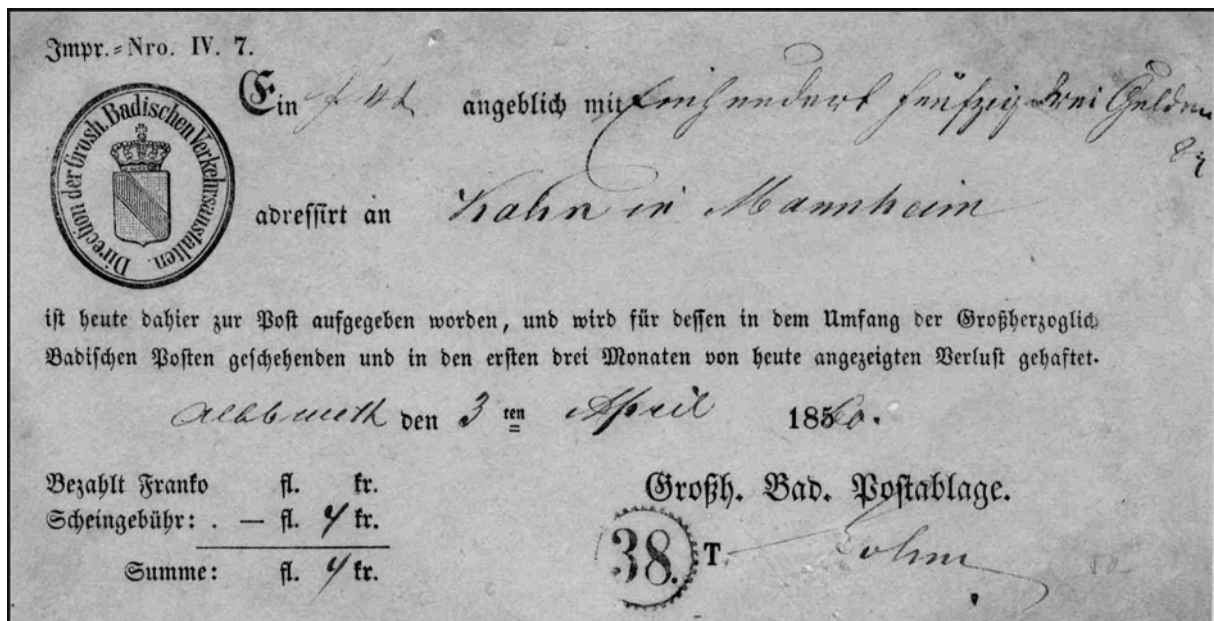 Impr.=Nro. IV. 7.
Direction der Grosh. Badischen Verkehrsanstalten.
Ein angeblich mit Einhundert fünfzig drei Gulden
adressirt an Kahn in Mannheim
ist heute dahier zur Post aufgegeben worden, und wird für dessen in dem Umfang der Großherzoglich
Badischen Posten geschehenden und in den ersten drei Monaten von heute angezeigten Verlust gehaftet.
den 3 ten April 1860.
Bezahlt Franko fl. kr.
Scheingebühr: . — fl. 4 kr.
Summe: fl. 4 kr.
Großh. Bad. Postablage.
38. T.